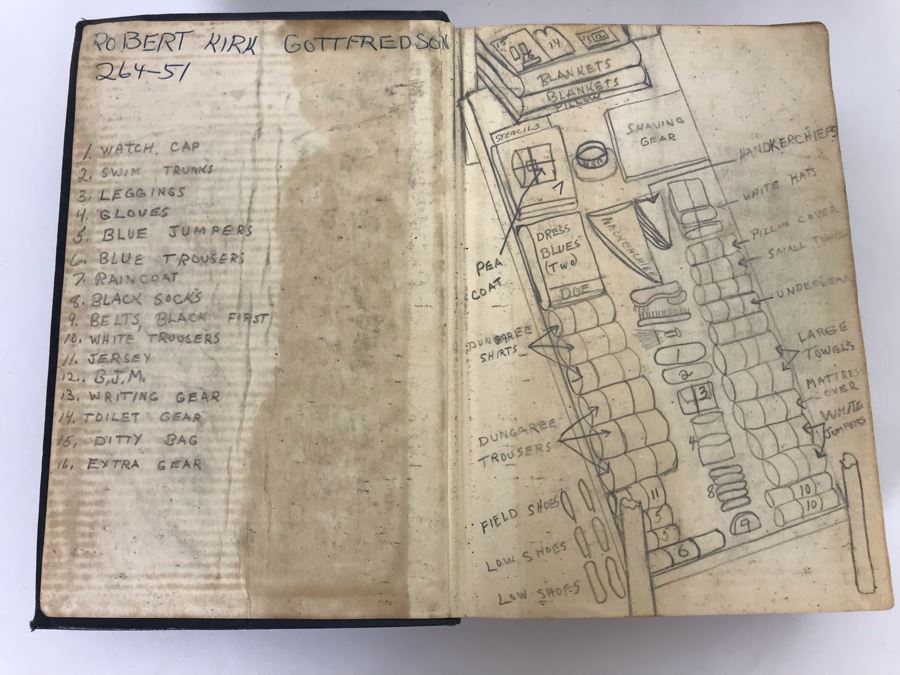 ROBERT KIRK GOTTFREDSON
264-51
1. WATCH CAP
2. SWIM TRUNKS
3. LEGGINGS
4. GLOVES
5. BLUE JUMPERS
6. BLUE TROUSERS
7. RAINCOAT
8. BLACK SOCKS
9. BELTS, BLACK FIRST
10. WHITE TROUSERS
11. JERSEY
12. B.J.M.
13. WRITING GEAR
14. TOILET GEAR
15. DITTY BAG
16. EXTRA GEAR
14
BLANKETS
BLANKETS
PILLOW
STENCILS
SHAVING GEAR
HANDKERCHIEFS
WHITE HATS
PILLOW COVER
SMALL TOWELS
UNDERWEAR
LARGE TOWELS
MATTRESS COVER
WHITE JUMPERS
PEA COAT
DRESS BLUES (TWO)
DOE
NECKERCHIEF
DUNGAREE SHIRTS
DUNGAREE TROUSERS
FIELD SHOES
LOW SHOES
LOW SHOES
1
2
3
4
8
9
11
5
6
10
10